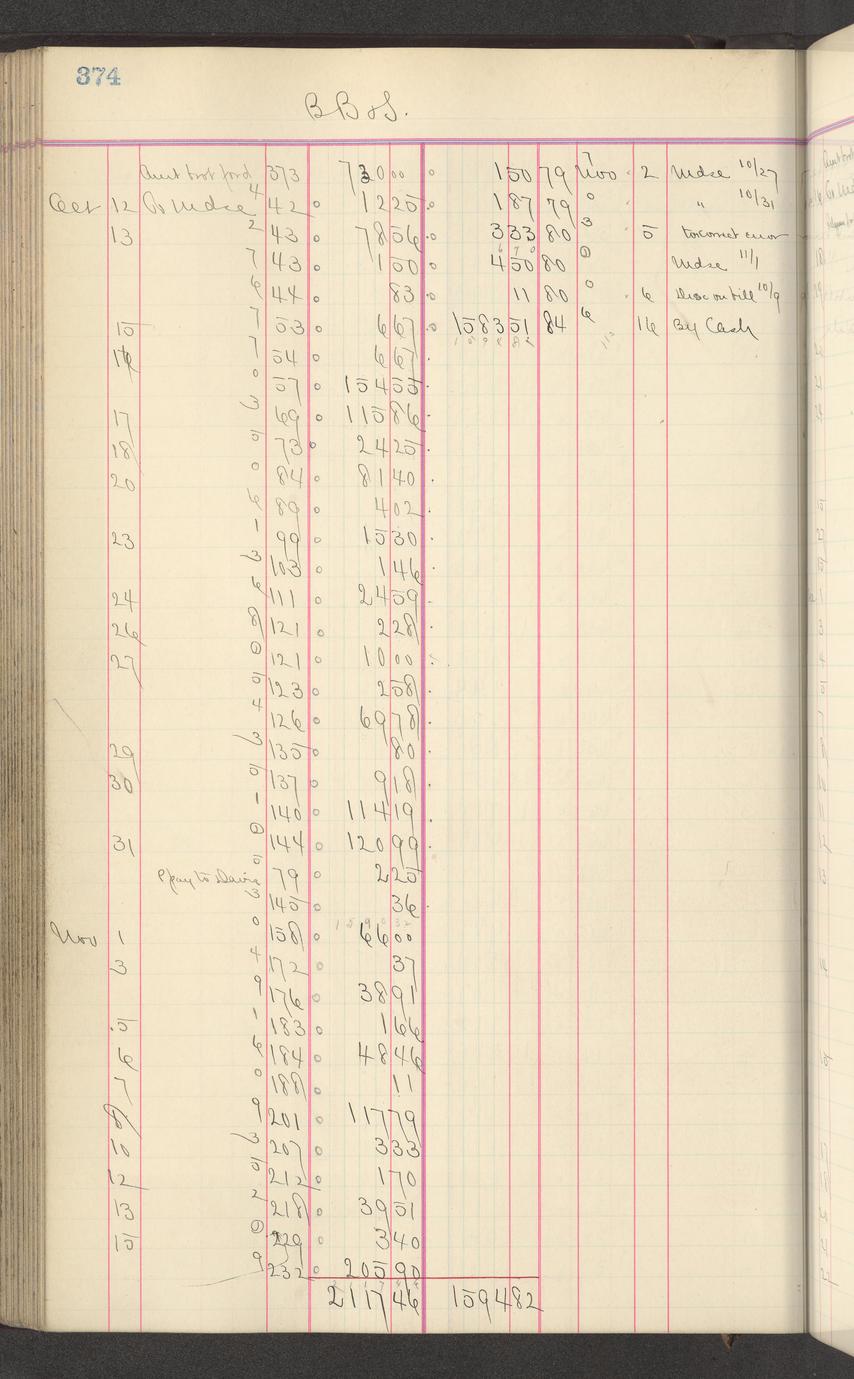 374
B B & S.
Amt brot ford 373 730 00 1 50 79 Nov 2 Mdse 10/27
Oct 12 To Mdse 42 12 25 1 87 79 " 10/31
13 43 78 56 3 33 80 5 to correct error
43 1 50 4 50 80 Mdse 11/1
44 83 11 80 6 Disc on bill 10/9
15 53 6 67 1583 51 84 16 By Cash
16 54 6 67
57 154 55
17 69 115 86
18 73 24 25
20 84 81 40
89 4 02
23 99 15 30
103 1 46
24 111 24 59
26 121 2 28
27 121 10 00
123 2 58
126 69 78
29 135 80
30 137 9 18
140 114 19
31 144 120 99
79 2 25
145 36
Nov 1 158 66 00
3 172 37
176 38 91
5 183 1 66
6 184 48 46
7 188 11
8 201 117 79
10 207 3 33
12 212 1 70
13 218 39 51
15 229 3 40
232 205 90
2117 46 1594 82